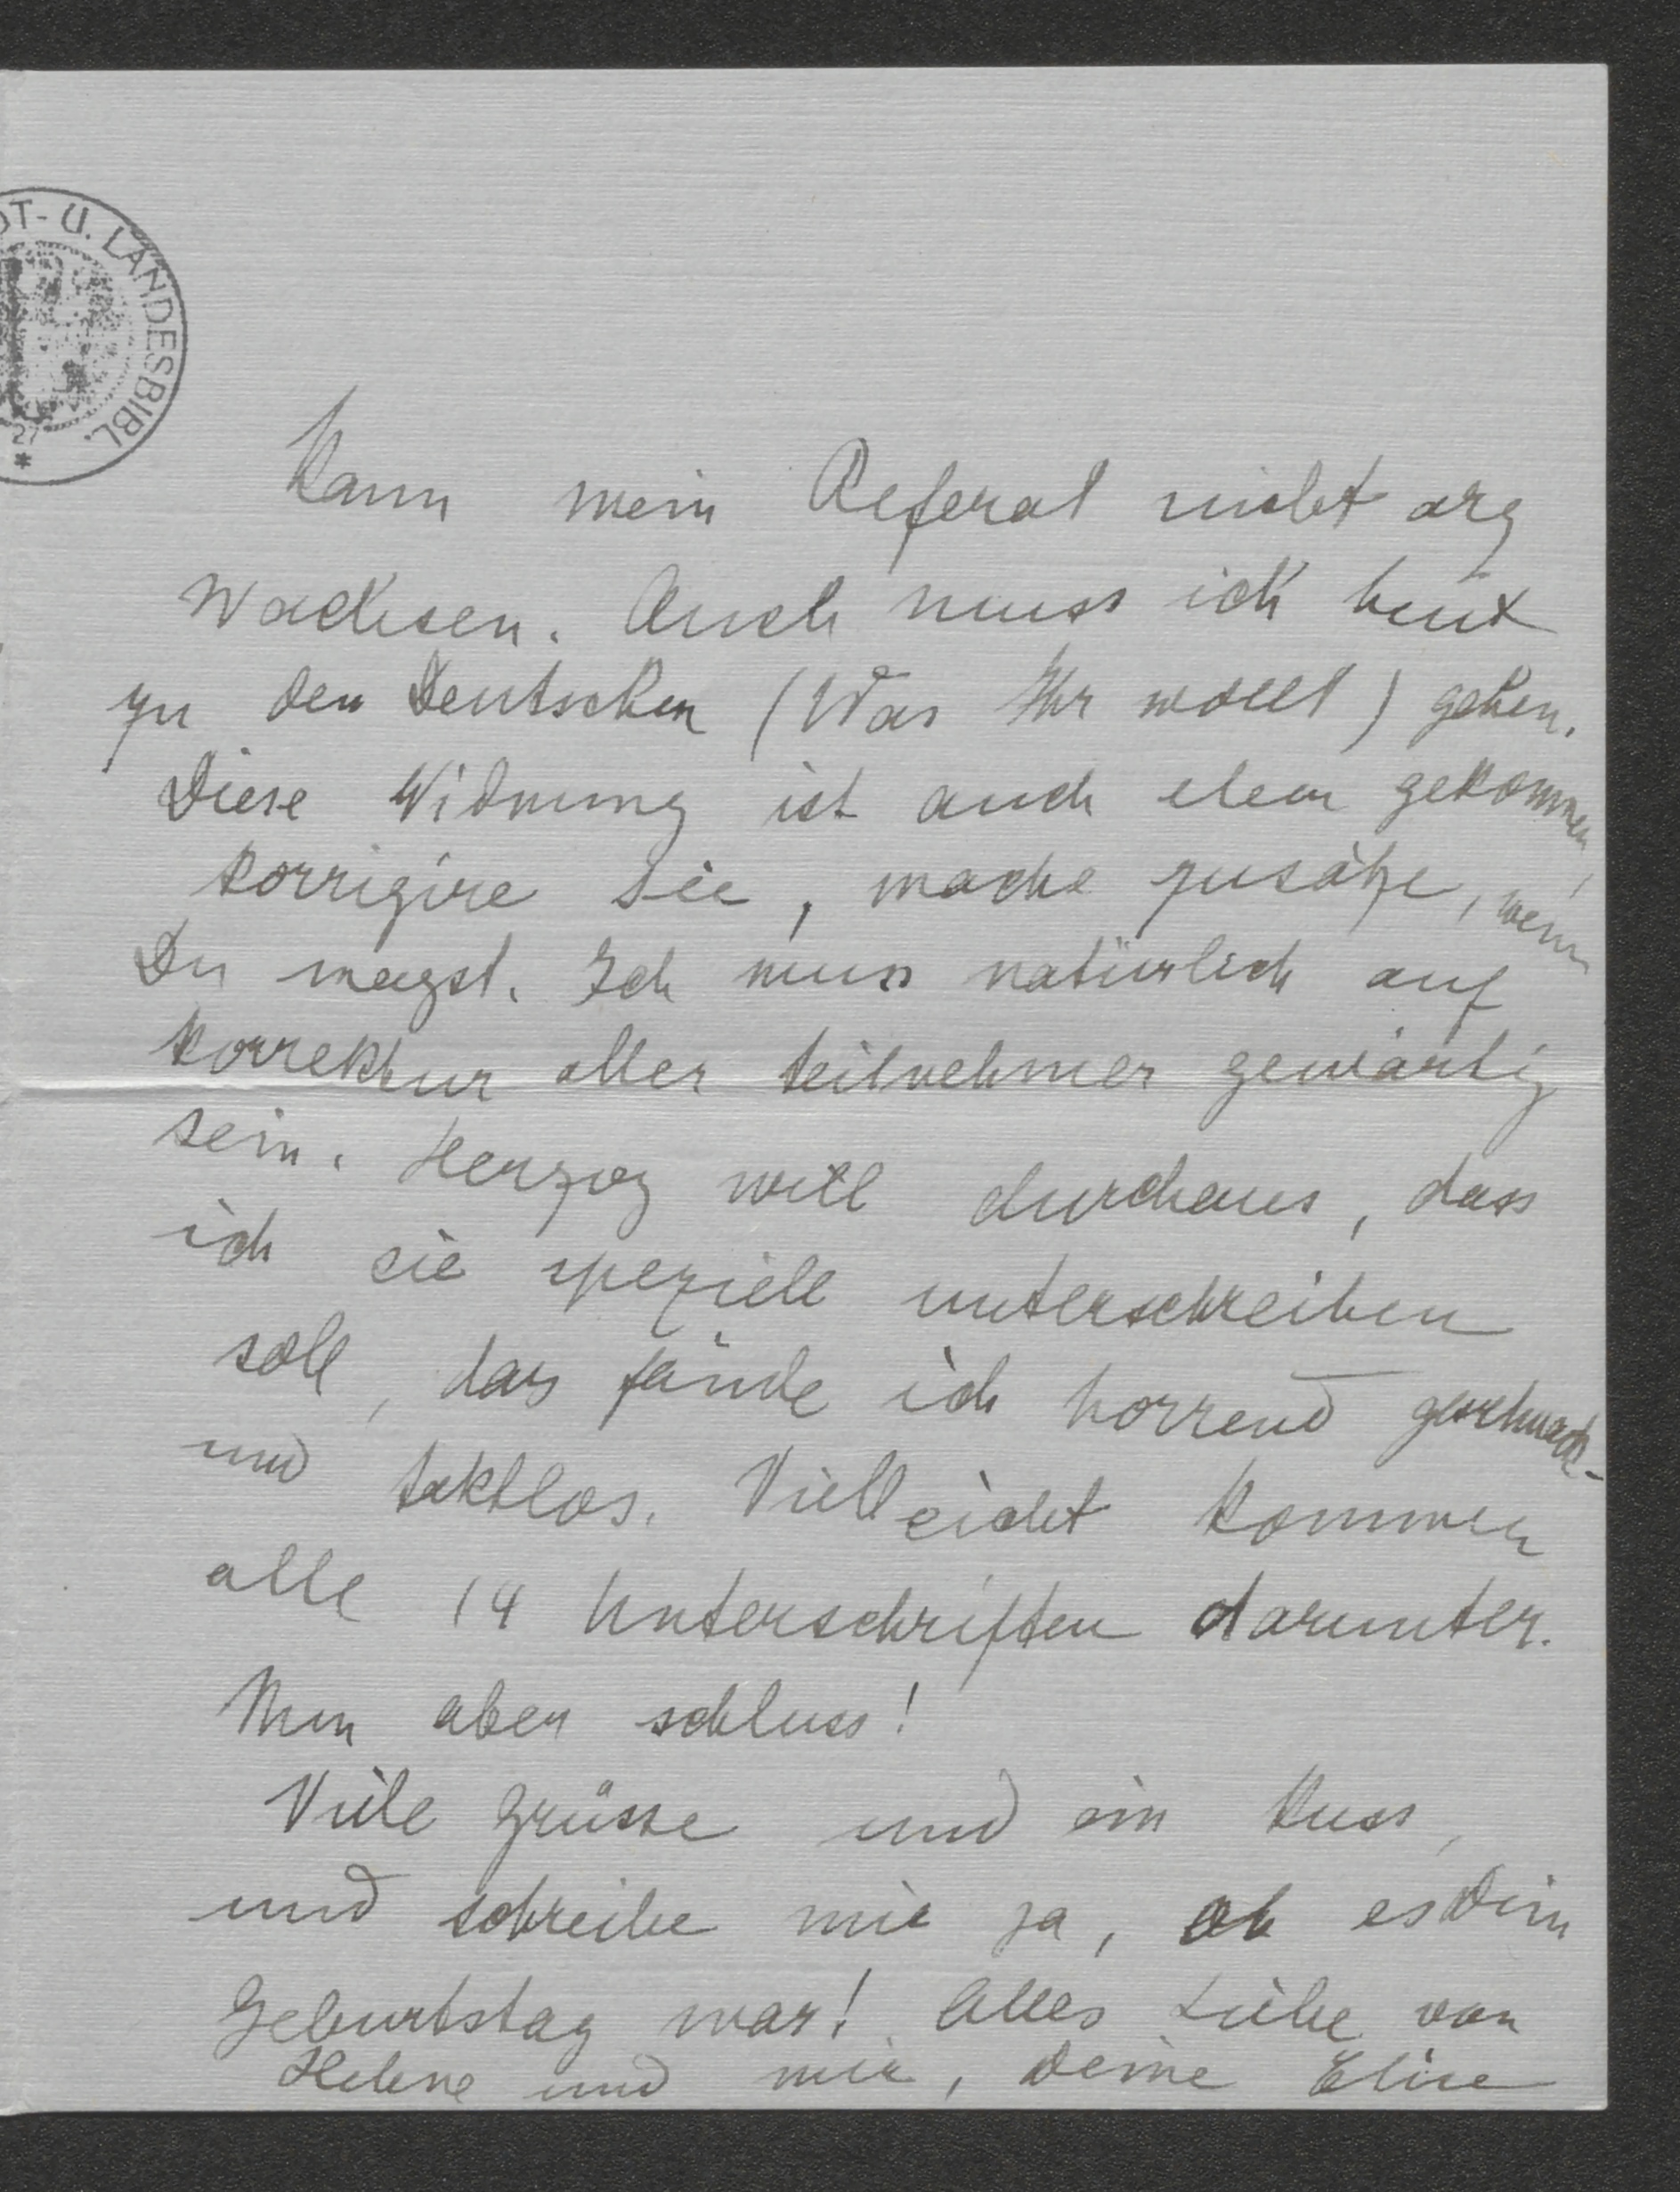 DT- U. LANDESBIBL.
27
*
Kann mein Referat nicht arg
wachsen. Auch muss ich heut
zu den Deutschen (Was Ihr wollt) gehen.
Diese Widmung ist auch eben gekommen,
korrigire sie, mache zusätze, wenn
Du magst. Ich muss natürlich auf
korrektur aller teilnehmer gewärtig
sein. Herzog will durchaus, dass
ich sie speziell unterschreiben
soll, das fände ich horrend geschmack-
und taktlos. Vielleicht kommen
alle 14 Unterschriften darunter.
Nun aber schluss!
Viele Grüsse und ein Kuss,
und schreibe mir ja, ob es Dein
Geburtstag war! Alles Liebe von
Helene und mir, Deine Elise